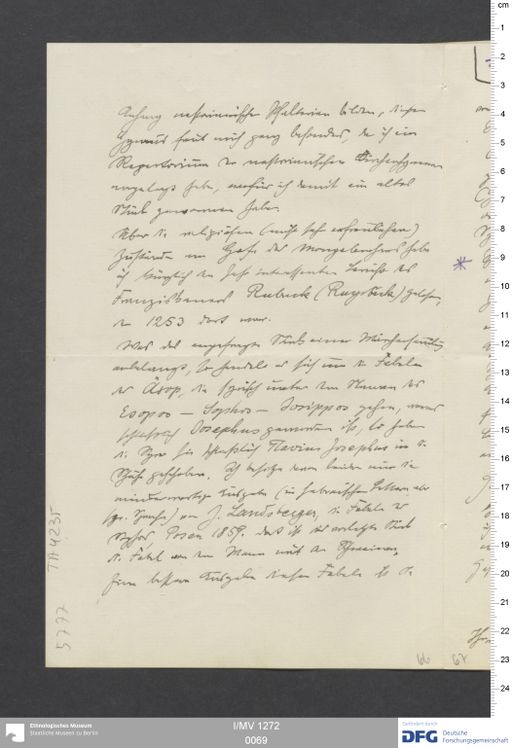 Anhang nestorianischer Psalterien bilden, dieser
freut mich ganz besonders, da ich ein
Repertorium der nestorianischen Kirchenhymnen
angelegt habe, wofür ich damit ein altes
Stück gewonnen habe.
Über die religiösen (nicht sehr erfreulichen)
Zustände am Hofe des Mongolen habe
ich kürzlich den sehr interessanten Bericht des
Franziskaners Rubruck (Ruysbruck) gelesen,
der 1253 dort war.
Was das angefragte Stück einer Märchensammlung
anbelangt, so handelt es sich um die Fabeln
des Äsop, die syrisch unter dem Namen des
Esopos — Sophos — Josippos gehen, woraus
schließlich Josephus geworden ist, so haben
die Syrer sie schließlich Flavius Josephus in die
Schuhe geschoben. Ich besitze davon leider nur die
minderwertige Ausgabe (in hebräischen Lettern, aber
syr. Sprache) von J. Landsberger, die Fabeln des
Sophos Posen 1859. dort ist das Stück
die Fabel von dem Mann mit den Schweinen.
Eine bessere Ausgabe dieser Fabeln ist die
*
TA 4235
5777
66
67
cm
1
2
3
4
5
6
7
8
9
10
11
12
13
14
15
16
17
18
19
20
21
22
23
24
Ethnologisches Museum
Staatliche Museen zu Berlin
I/MV 1272
0069
Gefördert durch
DFG Deutsche
Forschungsgemeinschaft